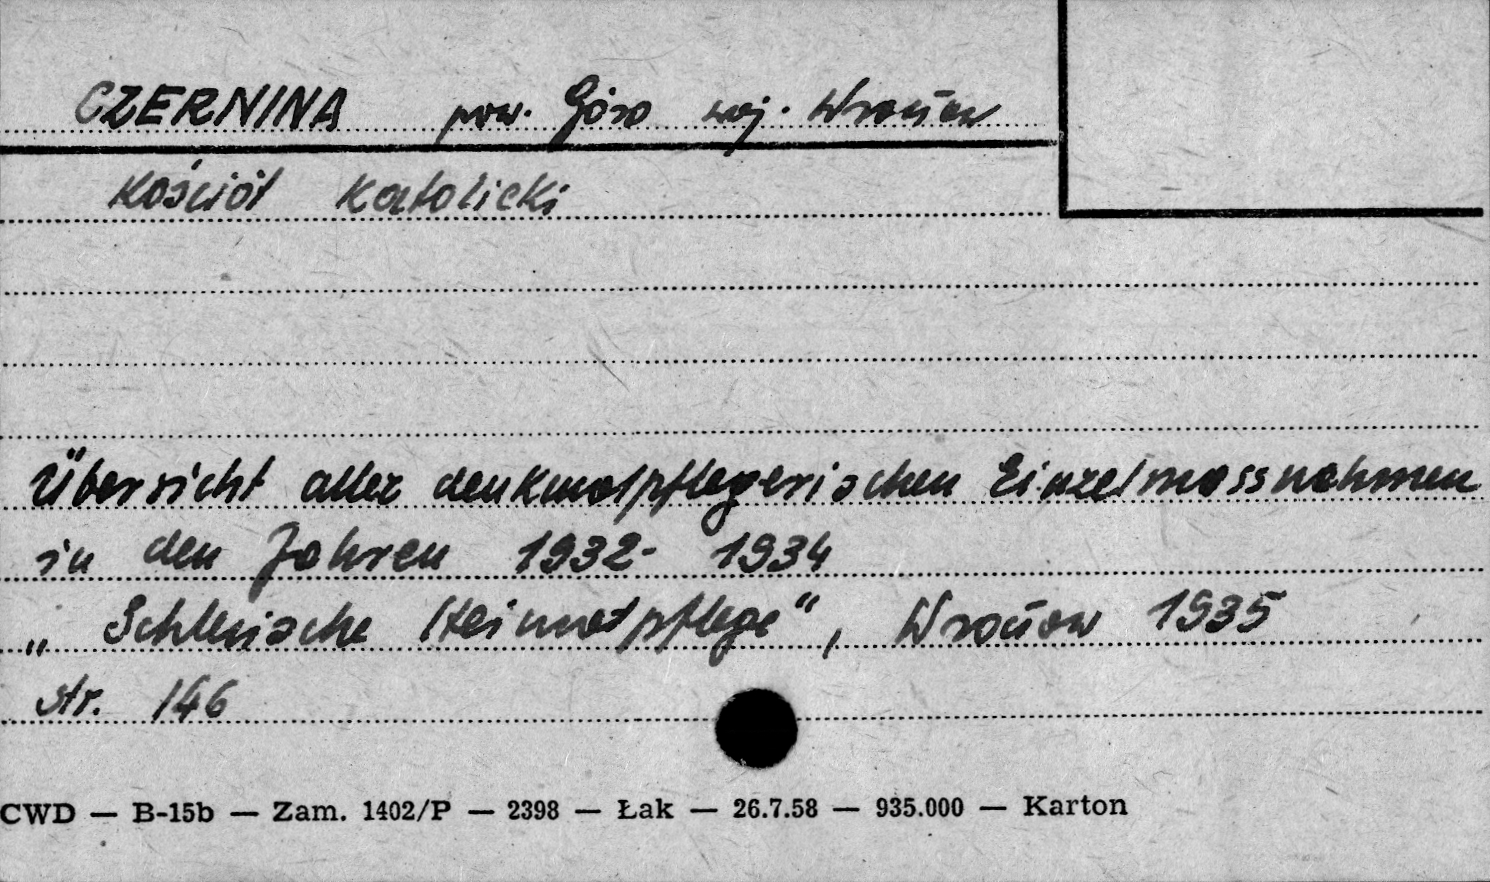 CZERNINA pow. Góra woj. Wrocław
Kościół Katolicki
Übersicht aller denkmalpflegerischen Einzelmassnahmen
in den Jahren 1932- 1934
„Schlesische Heimatpflege“, Wrocław 1935
str. 146
CWD — B-15b — Zam. 1402/P — 2398 — Łak — 26.7.58 — 935.000 — Karton